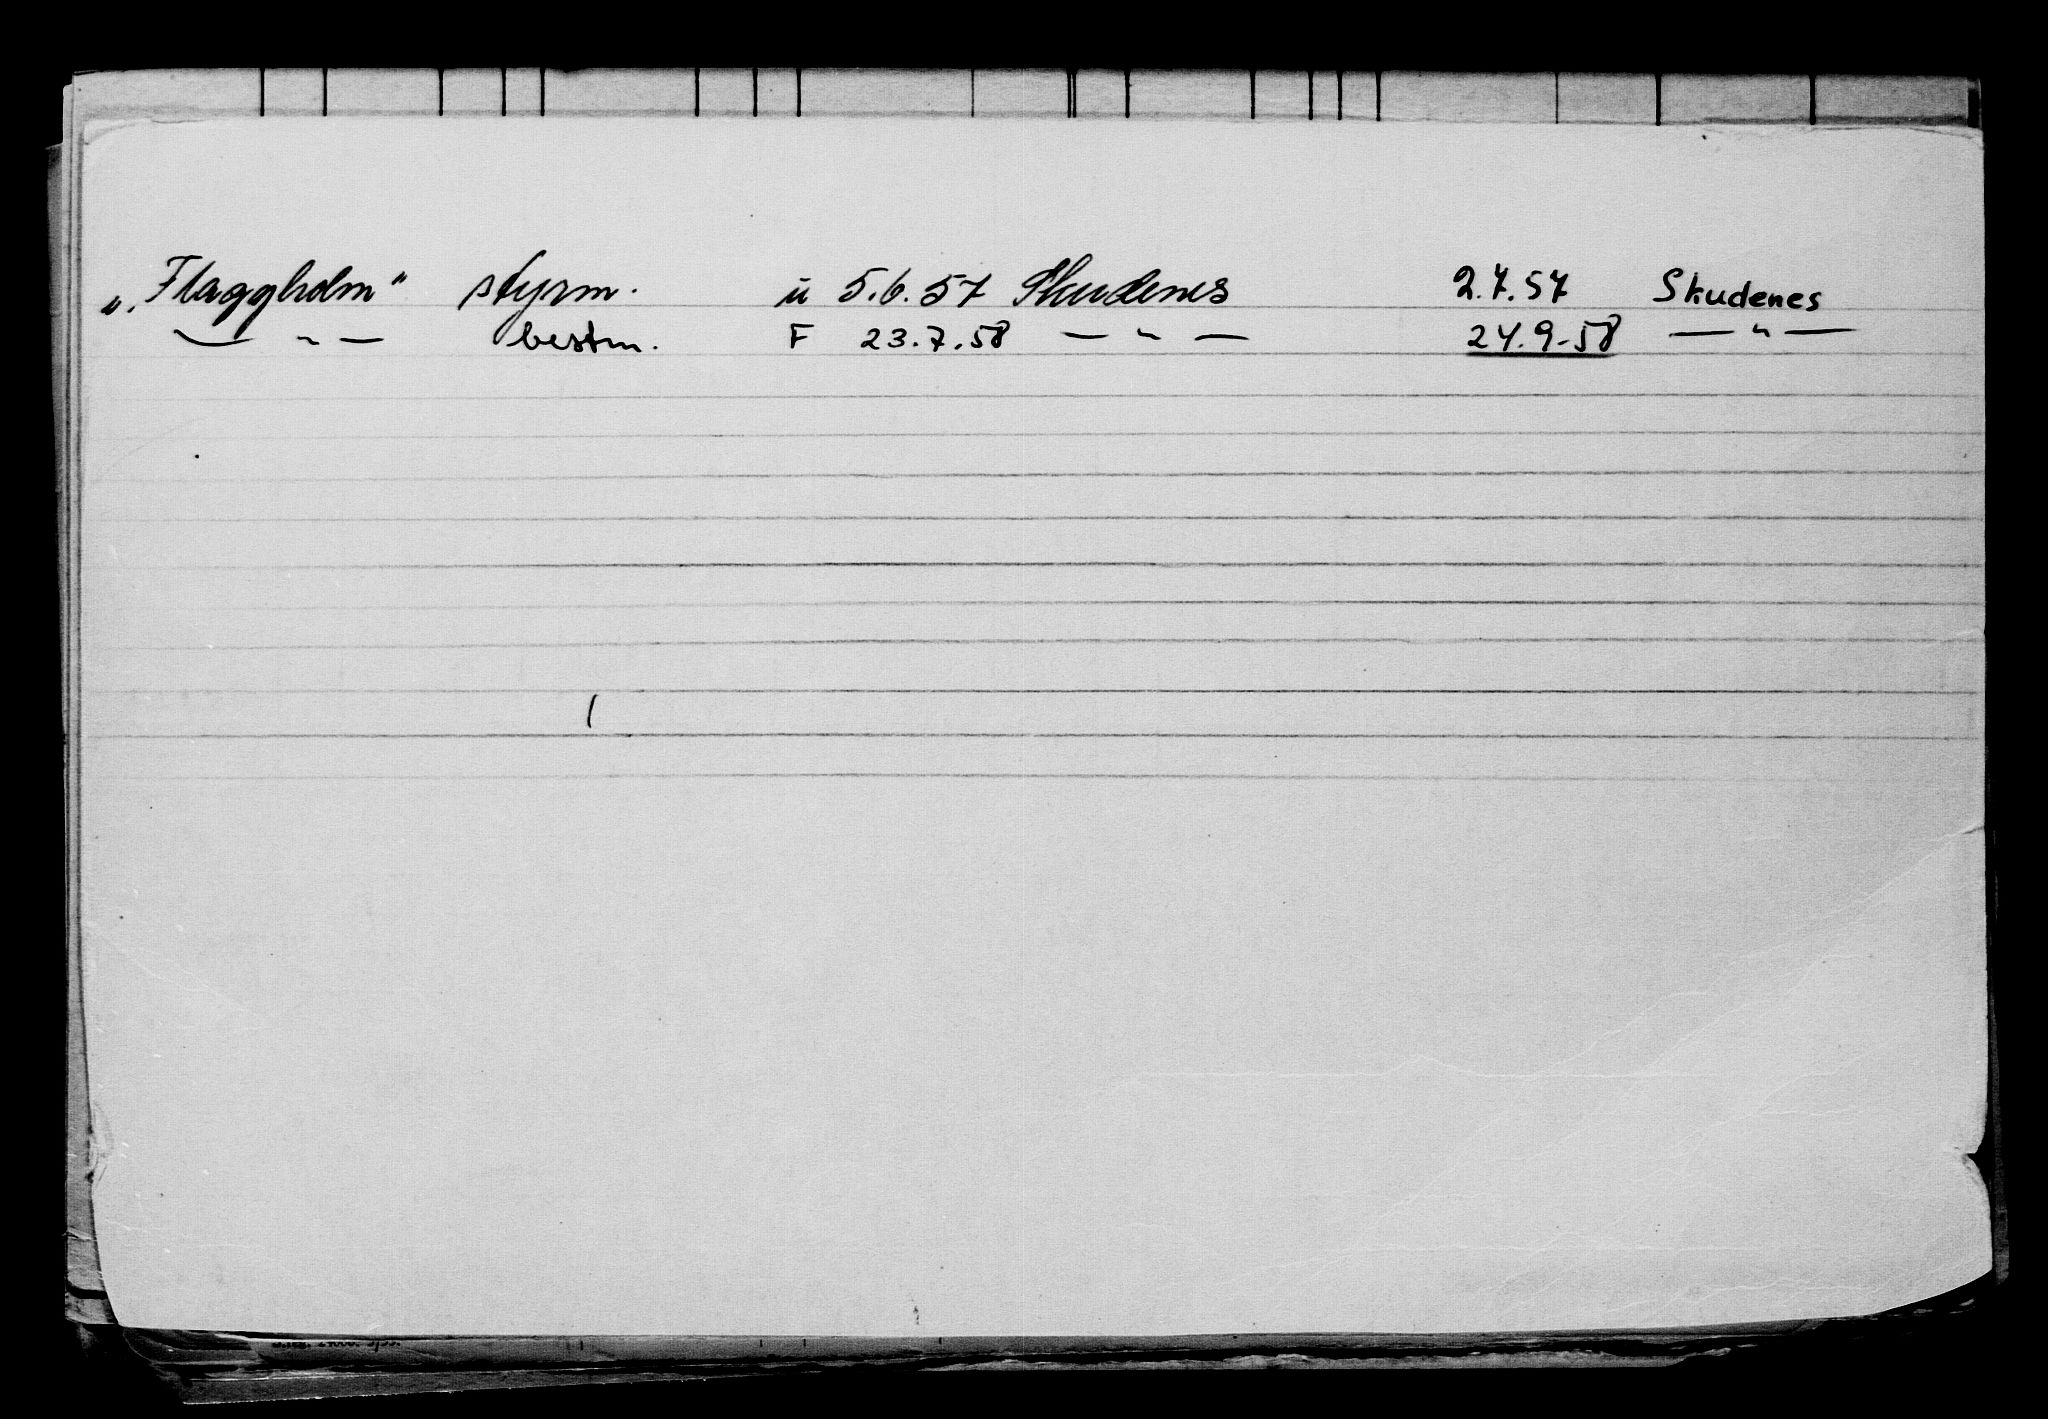 „Flaggholm" styrm. u 5.6.57 Skudenes 2.7.57 Skudenes
— " — bestm. F 23.7.58 — " — 24.9-58 — " —